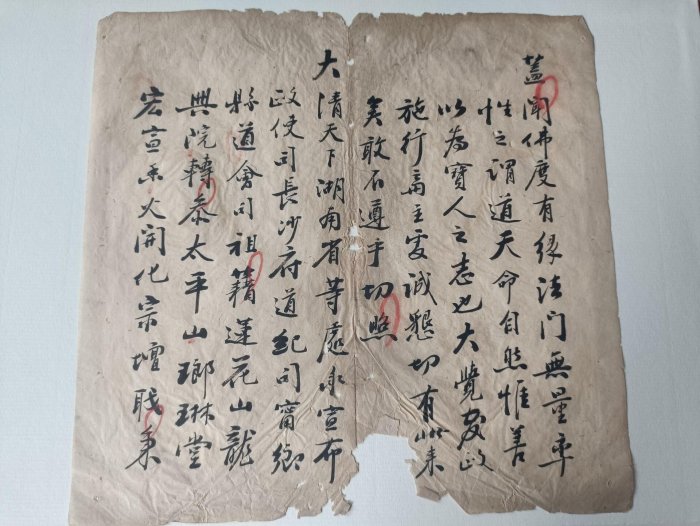 蓋聞佛度有緣法門無量率
性之謂道天命自然惟善
以為寶人之志也大覺發政
施行齋主虔誠懇切有此来
矣敢不遵乎切照
大清天下湖南省等處承宣布
政使司長沙府道紀司甯鄉
縣道會司祖籍蓮花山龍
興院轉恭太平山瑯琳堂
宏宣香火開化宗壇職秉